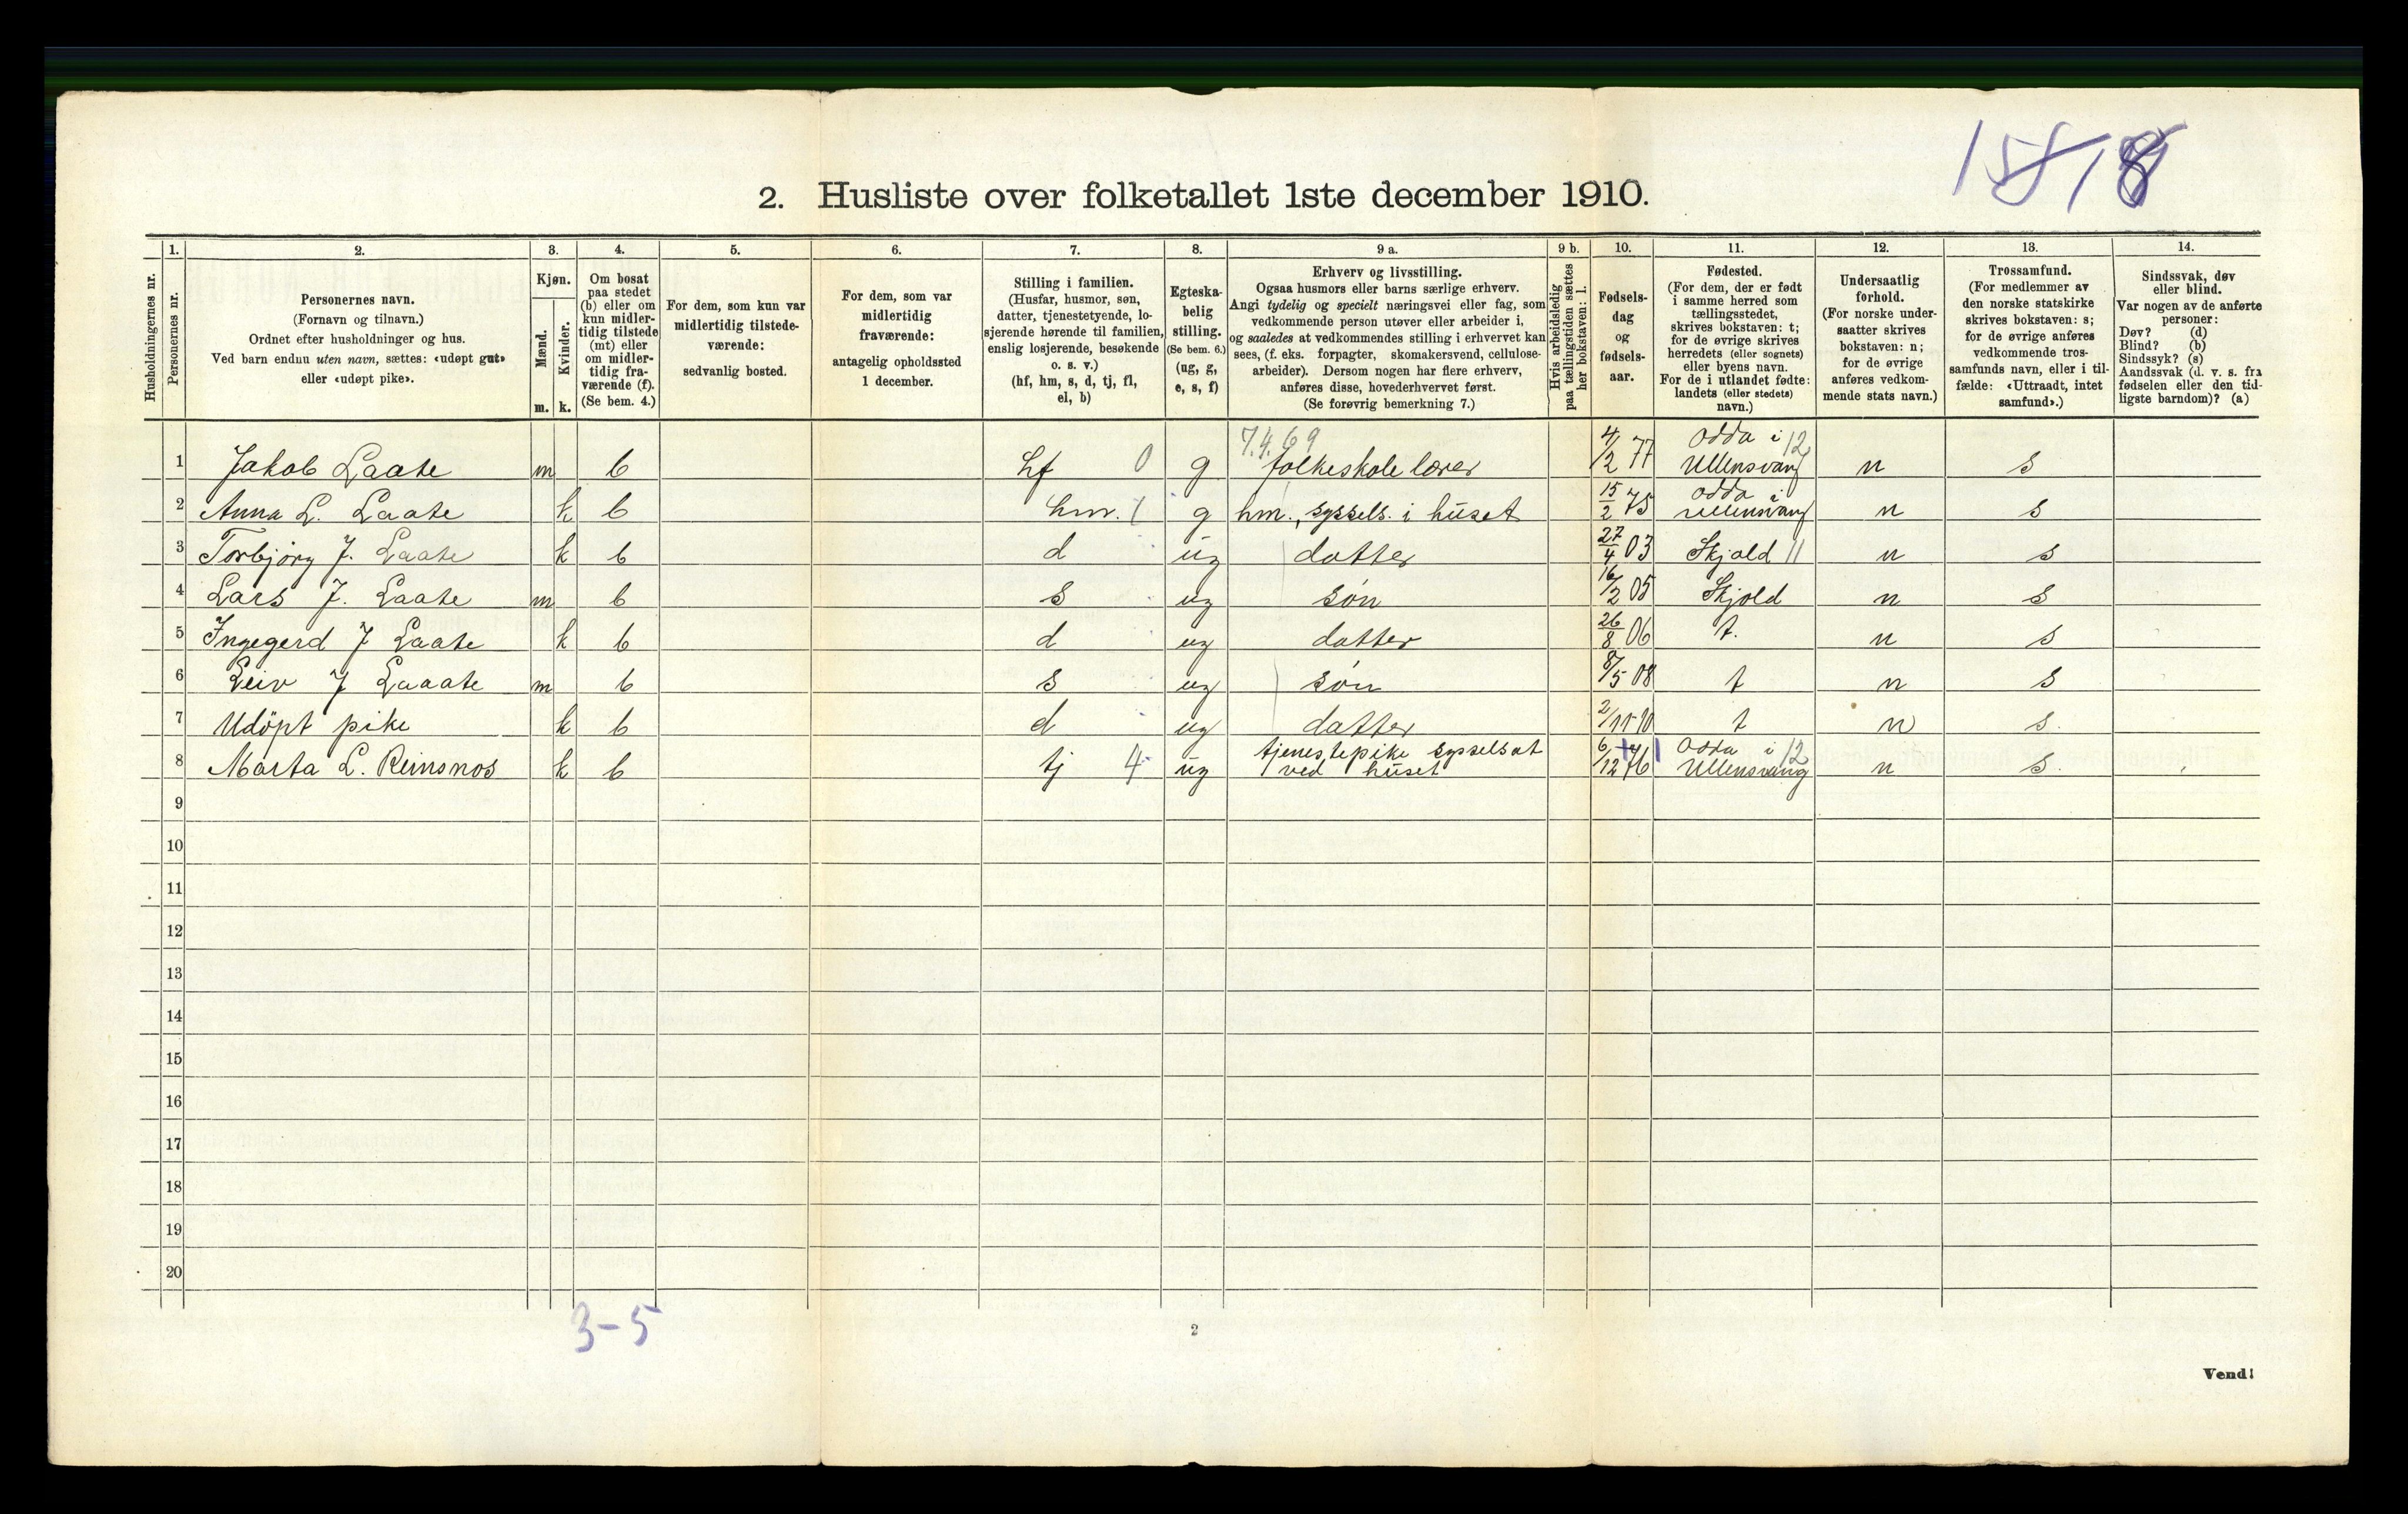 2. Husliste over folketallet 1ste december 1910.
1. 2. 3. 4. 5. 6. 7. 8. 9 a. 9 b. 10. 11. 12. 13. 14.
Husholdningernes nr.
Personernes nr.
Personernes navn.
(Fornavn og tilnavn.)
Ordnet efter husholdninger og hus.
Ved barn endnu uten navn, sættes: «udøpt gut»
eller «udøpt pike».
Kjøn.
Mænd.
Kvinder.
m. k.
Om bosat
paa stedet
(b) eller om
kun midler-
tidig tilstede
(mt) eller
om midler-
tidig fra-
værende (f).
(Se bem. 4.)
For dem, som kun var
midlertidig tilstede-
værende:
sedvanlig bosted.
For dem, som var
midlertidig
fraværende:
antagelig opholdssted
1 december.
Stilling i familien.
(Husfar, husmor, søn,
datter, tjenestetyende, lo-
sjerende hørende til familien,
enslig losjerende, besøkende
o. s. v.)
(hf, hm, s, d, tj, fl,
el, b)
Egteska-
belig
stilling.
(Se bem. 6.)
(ug, g,
e, s, f)
Erhverv og livsstilling.
Ogsaa husmors eller barns særlige erhverv.
Angi tydelig og specielt næringsvei eller fag, som
vedkommende person utøver eller arbeider i,
og saaledes at vedkommendes stilling i erhvervet kan
sees, (f. eks. forpagter, skomakersvend, cellulose-
arbeider). Dersom nogen har flere erhverv,
anføres disse, hovederhvervet først.
(Se forøvrig bemerkning 7.)
Hvis arbeidsledig
paa tællingstiden sættes
her bokstaven: l.
Fødsels-
dag
og
fødsels-
aar.
Fødested.
(For dem, der er født
i samme herred som
tællingsstedet,
skrives bokstaven: t;
for de øvrige skrives
herredets (eller sognets)
eller byens navn.
For de i utlandet fødte:
landets (eller stedets)
navn.)
Undersaatlig
forhold.
(For norske under-
saatter skrives
bokstaven: n;
for de øvrige
anføres vedkom-
mende stats navn.)
Trossamfund.
(For medlemmer av
den norske statskirke
skrives bokstaven: s;
for de øvrige anføres
vedkommende tros-
samfunds navn, eller i til-
fælde: «Uttraadt, intet
samfund».)
Sindssvak, døv
eller blind.
Var nogen av de anførte
personer:
Døv? (d)
Blind? (b)
Sindssyk? (s)
Aandssvak (d. v. s. fra
fødselen eller den tid-
ligste barndom)? (a)
7.4.69 Odda i 12
1 Jakob Laate m b hf 0 g folkeskolelærer 4/2 77 Ullensvang n s
Odda i
2 Anna L. Laate k b hm. 1 g hm., syssels. i huset 15/2 75 Ullensvang n s
3 Torbjörg J. Laate k b d ug datter 27/4 03 Skjold 11 n s
4 Lars J. Laate m b s ug søn 16/2 05 Skjold n s
5 Ingegerd J Laate k b d ug datter 26/8 06 t. n s
6 Leiv J Laaate m b s ug søn 8/5 08 t n s
7 Udöpt pike k b d ug datter 2/11 10 t n s.
tjenestepike sysselsat Odda i 12
8 Marta L. Reinsnos k b tj 4 ug ved huset 6/12 76 Ullensvang n s.
9
10
11
12
13
14
15
16
17
18
19
20
3-5
2
Vend!